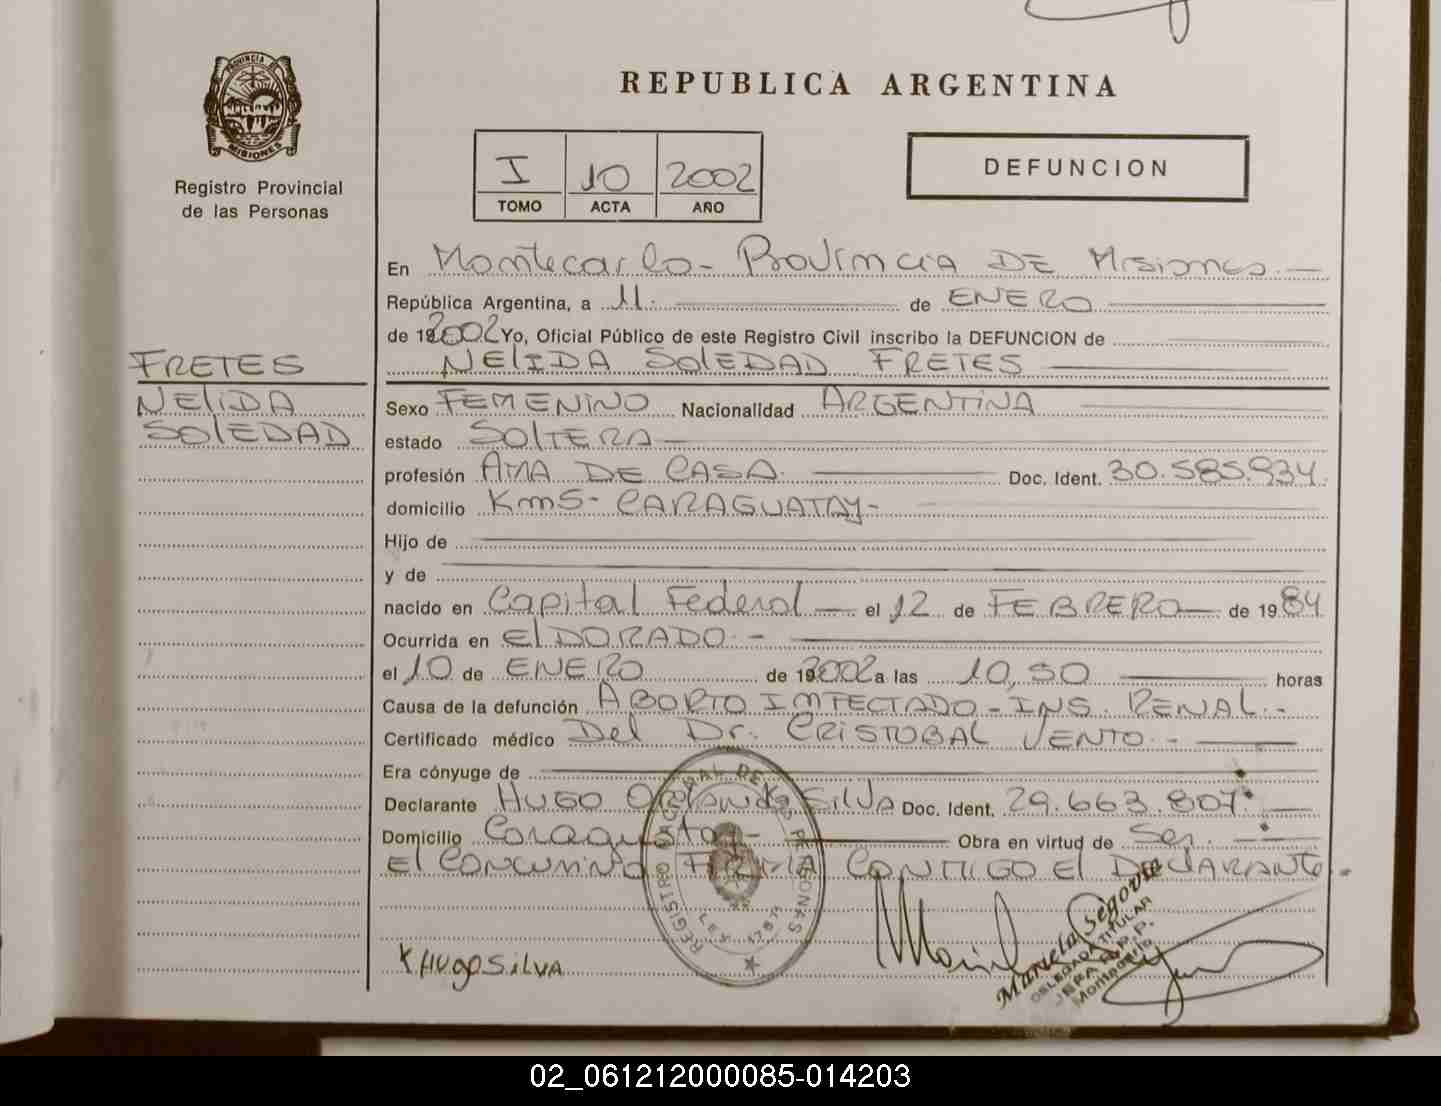 PROVINCIA DE
MISIONES
Registro Provincial
de las Personas
REPUBLICA ARGENTINA
I 10 2002
TOMO ACTA AÑO
DEFUNCION
En Montecarlo - Provincia DE Misiones. -
República Argentina, a 11. de ENERO
de 192002 Yo, Oficial Público de este Registro Civil inscribo la DEFUNCION de
NELIDA SOLEDAD FRETES
FRETES
NELIDA
SOLEDAD
Sexo FEMENINO Nacionalidad ARGENTINA
estado SOLTERA -
profesión AMA DE CASA. Doc. Ident. 30.585.934.
domicilio Km5 - CARAGUATAY -
Hijo de
y de
nacido en Capital Federal - el 12 de FEBRERO - de 1984
Ocurrida en ELDORADO. -
el 10 de ENERO de 192002 a las 10,50 horas
Causa de la defunción ABORTO INFECTADO - INS. RENAL. -
Certificado médico Del Dr. CRISTOBAL VENTO. -
Era cónyuge de
Declarante HUGO Orlando SILVA Doc. Ident. 29.663.807. -
Domicilio Caraguatay - Obra en virtud de Ser. -
El CONCUBINO FIRMA CONMIGO El DEClARANTE. -
REGISTRO NACIONAL DE LAS PERSONAS
LEY 17671
X HUgO SILVA
Mariela Segovia
DELEGADA TITULAR
02_061212000085-014203